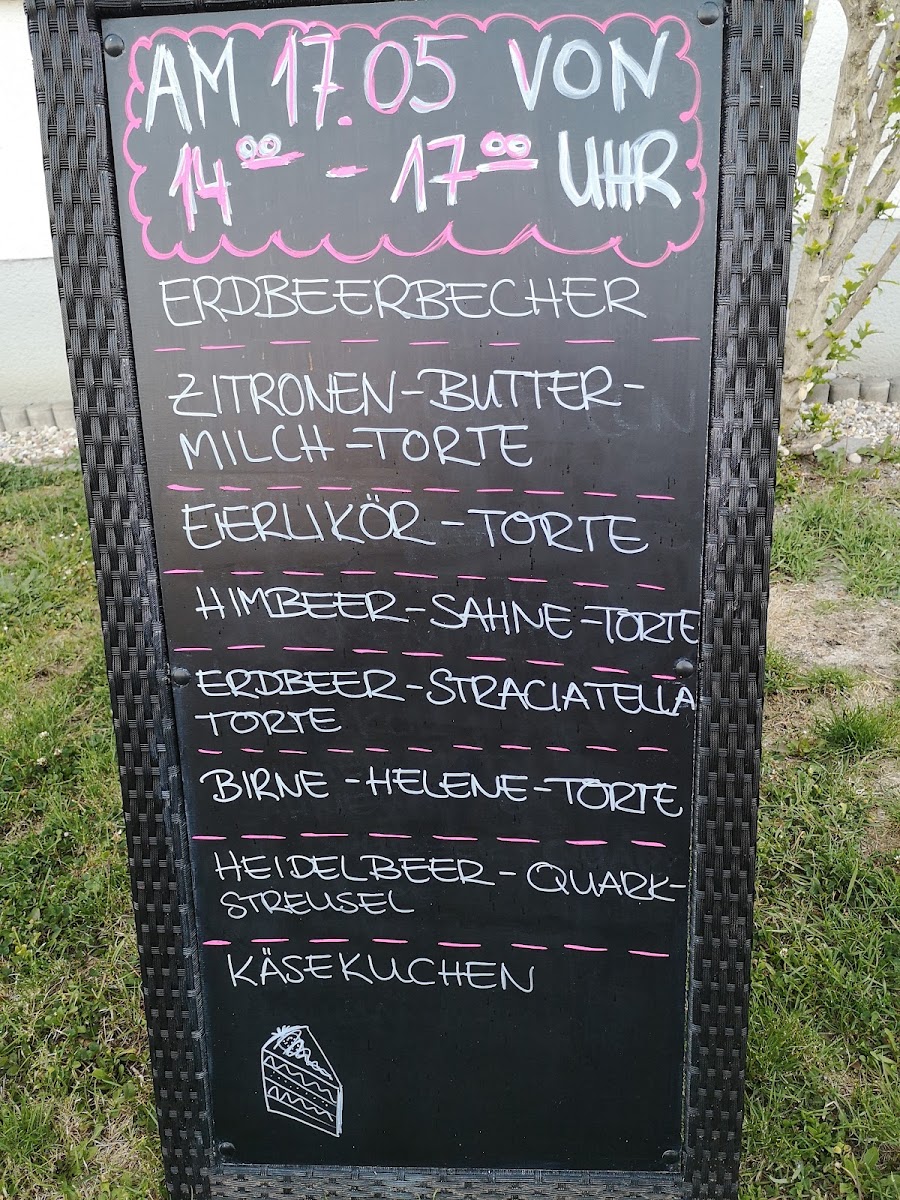 AM 17.05 VON
14⁰⁰ - 17⁰⁰ UHR
ERDBEERBECHER
ZITRONEN-BUTTER-
MILCH-TORTE
EIERLIKÖR-TORTE
HIMBEER-SAHNE-TORTE
ERDBEER-STRACIATELLA
TORTE
BIRNE-HELENE-TORTE
HEIDELBEER-QUARK-
STREUSEL
KÄSEKUCHEN